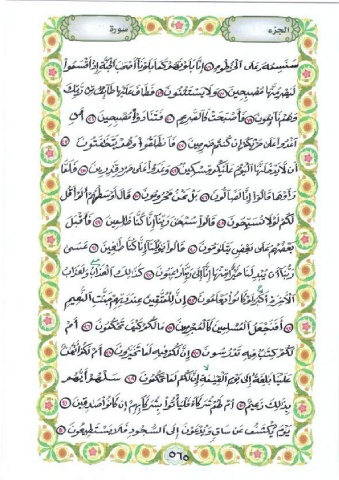 الجزء
سورة
سنسمه على الخرطوم إنا بلونهم كما بلونا أصحب الجنة إذ أقسموا
ليصرمنها مصبحين ولا يستثنون فطاف عليها طائف من ربك
وهم نائمون فأصبحت كالصريم فتنادوا مصبحين أن
اغدوا على حرثكم إن كنتم صرمين فانطلقوا وهم يتخفتون
أن لا يدخلنها اليوم عليكم مسكين وغدوا على حرد قدرين فلما
رأوها قالوا إنا لضالون بل نحن محرومون قال أوسطهم ألم أقل
لكم لولا تسبحون قالوا سبحن ربنا إنا كنا ظلمين فأقبل
بعضهم على بعض يتلومون قالوا يويلنا إنا كنا طغين عسى
ربنا أن يبدلنا خيرا منها إنا إلى ربنا رغبون كذلك العذاب ولعذاب
الآخرة أكبر لو كانوا يعلمون إن للمتقين عند ربهم جنت النعيم
أفنجعل المسلمين كالمجرمين ما لكم كيف تحكمون أم
لكم كتب فيه تدرسون إن لكم فيه لما تخيرون أم لكم أيمن
علينا بلغة إلى يوم القيمة إن لكم لما تحكمون سلهم أيهم
بذلك زعيم أم لهم شركاء فليأتوا بشركائهم إن كانوا صدقين
يوم يكشف عن ساق ويدعون إلى السجود فلا يستطيعون
٥٦٥